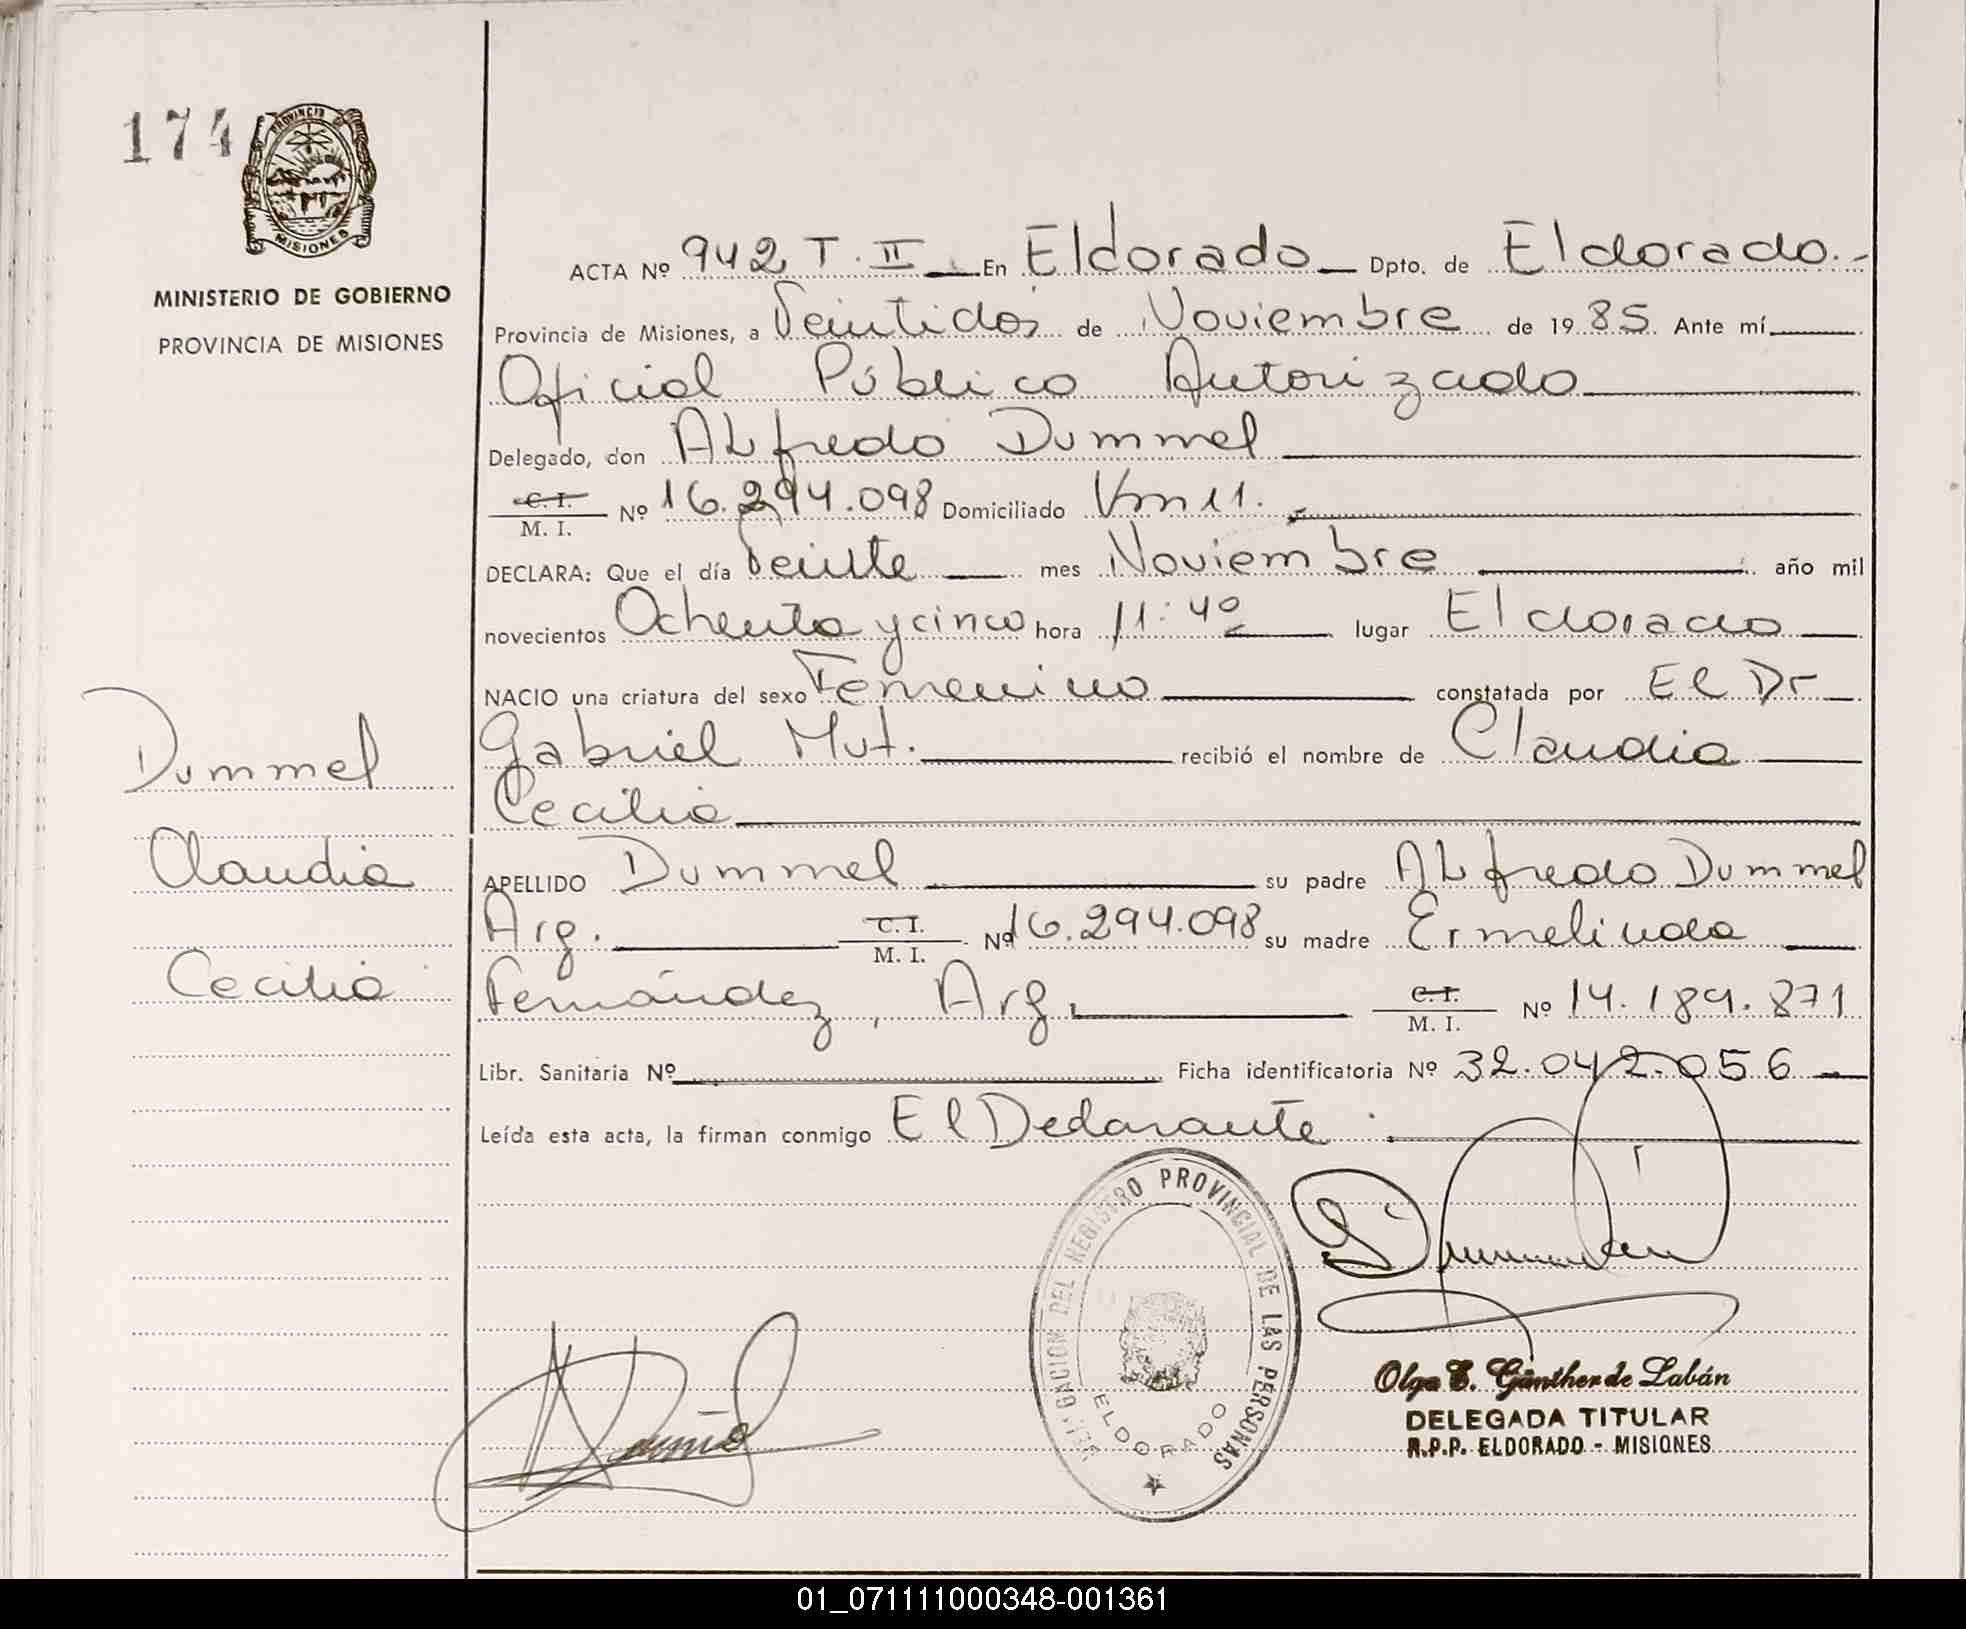 174
PROVINCIA DE
MISIONES
MINISTERIO DE GOBIERNO
PROVINCIA DE MISIONES
ACTA Nº 942 T. II En Eldorado Dpto. de Eldorado.-
Provincia de Misiones, a Veintidós de Noviembre de 1985. Ante mí
Oficial Público Autorizado
Delegado, don Alfredo Dummel
C. I. / M. I. Nº 16.294.098 Domiciliado Km 11.
DECLARA: Que el día Veinte mes Noviembre año mil
novecientos Ochenta y cinco hora 11:40 lugar Eldorado
NACIO una criatura del sexo Femenino constatada por El Dr
Gabriel Mut. recibió el nombre de Claudia
Cecilia
APELLIDO Dummel su padre Alfredo Dummel
Arg. C. I. / M. I. Nº 16.294.098 su madre Ermelinda
Fernández, Arg. C. I. / M. I. Nº 14.189.871
Libr. Sanitaria Nº Ficha identificatoria Nº 32.042.056
Leída esta acta, la firman conmigo El Declarante.
Dummel
Claudia
Cecilia
DELEGACION DEL REGISTRO PROVINCIAL DE LAS PERSONAS
ELDORADO
Olga E. Günther de Labán
DELEGADA TITULAR
R.P.P. ELDORADO - MISIONES
01_071111000348-001361